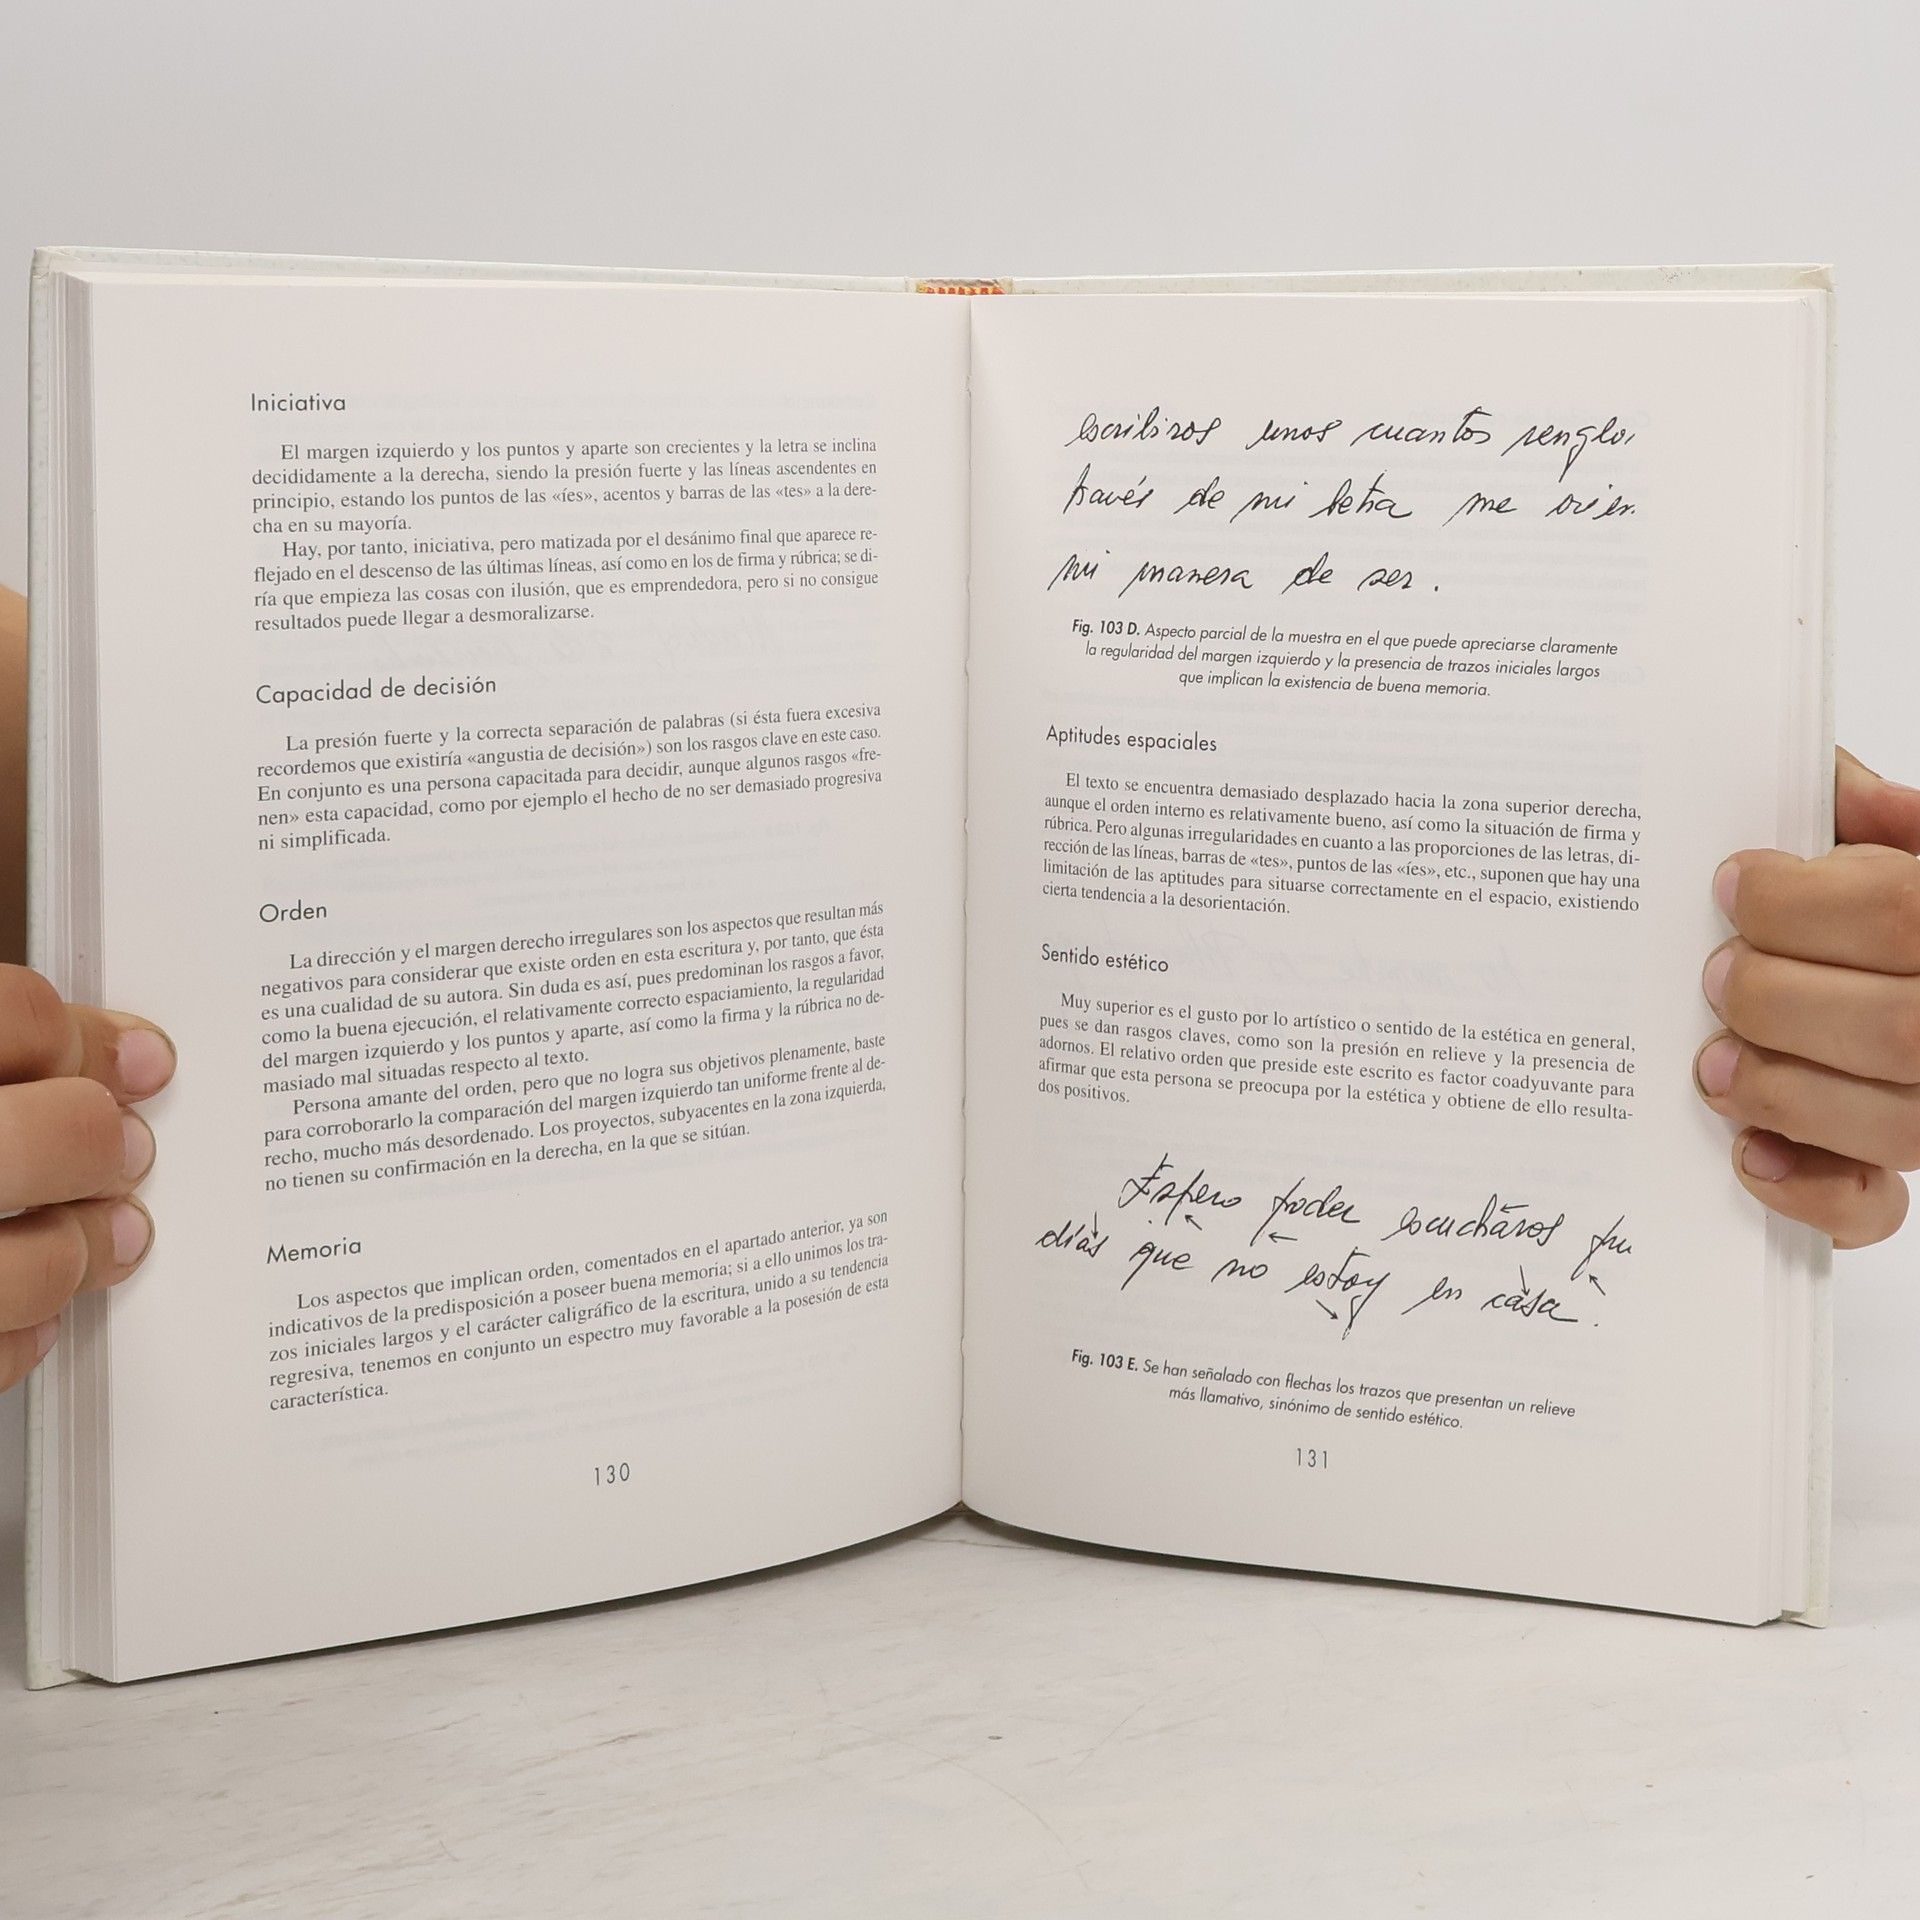 Iniciativa
El margen izquierdo y los puntos y aparte son crecientes y la letra se inclina
decididamente a la derecha, siendo la presión fuerte y las líneas ascendentes en
principio, estando los puntos de las «íes», acentos y barras de las «tes» a la dere-
cha en su mayoría.
Hay, por tanto, iniciativa, pero matizada por el desánimo final que aparece re-
flejado en el descenso de las últimas líneas, así como en los de firma y rúbrica; se di-
ría que empieza las cosas con ilusión, que es emprendedora, pero si no consigue
resultados puede llegar a desmoralizarse.
Capacidad de decisión
La presión fuerte y la correcta separación de palabras (si ésta fuera excesiva
recordemos que existiría «angustia de decisión») son los rasgos clave en este caso.
En conjunto es una persona capacitada para decidir, aunque algunos rasgos «fre-
nen» esta capacidad, como por ejemplo el hecho de no ser demasiado progresiva
ni simplificada.
Orden
La dirección y el margen derecho irregulares son los aspectos que resultan más
negativos para considerar que existe orden en esta escritura y, por tanto, que ésta
es una cualidad de su autora. Sin duda es así, pues predominan los rasgos a favor,
como la buena ejecución, el relativamente correcto espaciamiento, la regularidad
del margen izquierdo y los puntos y aparte, así como la firma y la rúbrica no de-
masiado mal situadas respecto al texto.
Persona amante del orden, pero que no logra sus objetivos plenamente, baste
para corroborarlo la comparación del margen izquierdo tan uniforme frente al de-
recho, mucho más desordenado. Los proyectos, subyacentes en la zona izquierda,
no tienen su confirmación en la derecha, en la que se sitúan.
Memoria
Los aspectos que implican orden, comentados en el apartado anterior, ya son
indicativos de la predisposición a poseer buena memoria; si a ello unimos los tra-
zos iniciales largos y el carácter caligráfico de la escritura, unido a su tendencia
regresiva, tenemos en conjunto un espectro muy favorable a la posesión de esta
característica.
130
escribiros unos cuantos renglo
través de mi letra me
mi manera de ser.
Fig. 103 D. Aspecto parcial de la muestra en el que puede apreciarse claramente
la regularidad del margen izquierdo y la presencia de trazos iniciales largos
que implican la existencia de buena memoria.
Aptitudes espaciales
El texto se encuentra demasiado desplazado hacia la zona superior derecha,
aunque el orden interno es relativamente bueno, así como la situación de firma y
rúbrica. Pero algunas irregularidades en cuanto a las proporciones de las letras, di-
rección de las líneas, barras de «tes», puntos de las «íes», etc., suponen que hay una
limitación de las aptitudes para situarse correctamente en el espacio, existiendo
cierta tendencia a la desorientación.
Sentido estético
Muy superior es el gusto por lo artístico o sentido de la estética en general,
pues se dan rasgos claves, como son la presión en relieve y la presencia de
adornos. El relativo orden que preside este escrito es factor coadyuvante para
afirmar que esta persona se preocupa por la estética y obtiene de ello resulta-
dos positivos.
Espero poder escucharos pu
días que no estoy en casa.
Fig. 103 E. Se han señalado con flechas los trazos que presentan un relieve
más llamativo, sinónimo de sentido estético.
131